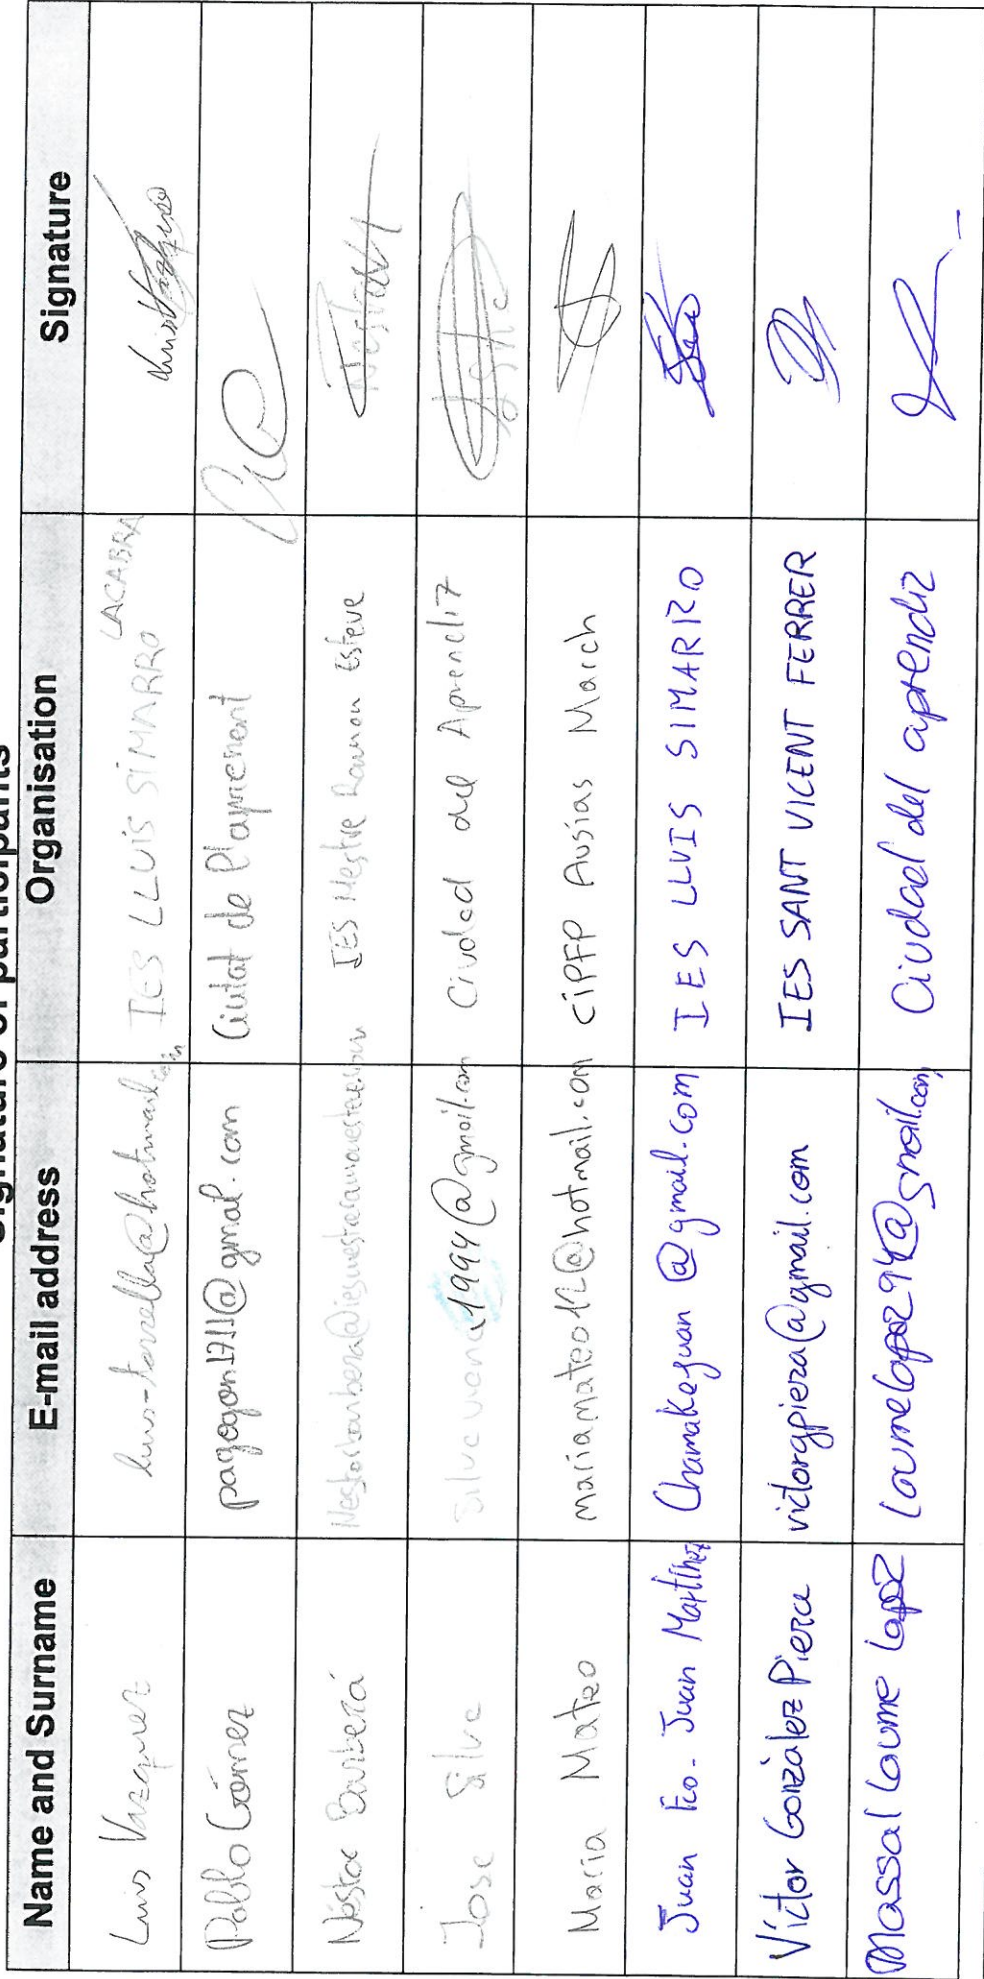 Signature of participants
Name and Surname E-mail address Organisation Signature
Luis Vazquez IES LLUIS SIMARRO LACABRA
Pablo Gómez pagogon1711@gmail.com Ciutat de l'aprenent
Néstor Barberá IES Mestre Ramon Esteve
Jose Silva 1994@gmail.com Ciudad del Aprendiz
Maria Mateo mariamateo12@hotmail.com CIPFP Ausias March
Juan Fco. Juan Martínez Chamakejuan@gmail.com IES LLUIS SIMARRO
Víctor González Piera victorgpiera@gmail.com IES SANT VICENT FERRER
Massal Loume Lopez Loumelopez94@gmail.com Ciudad del aprendiz